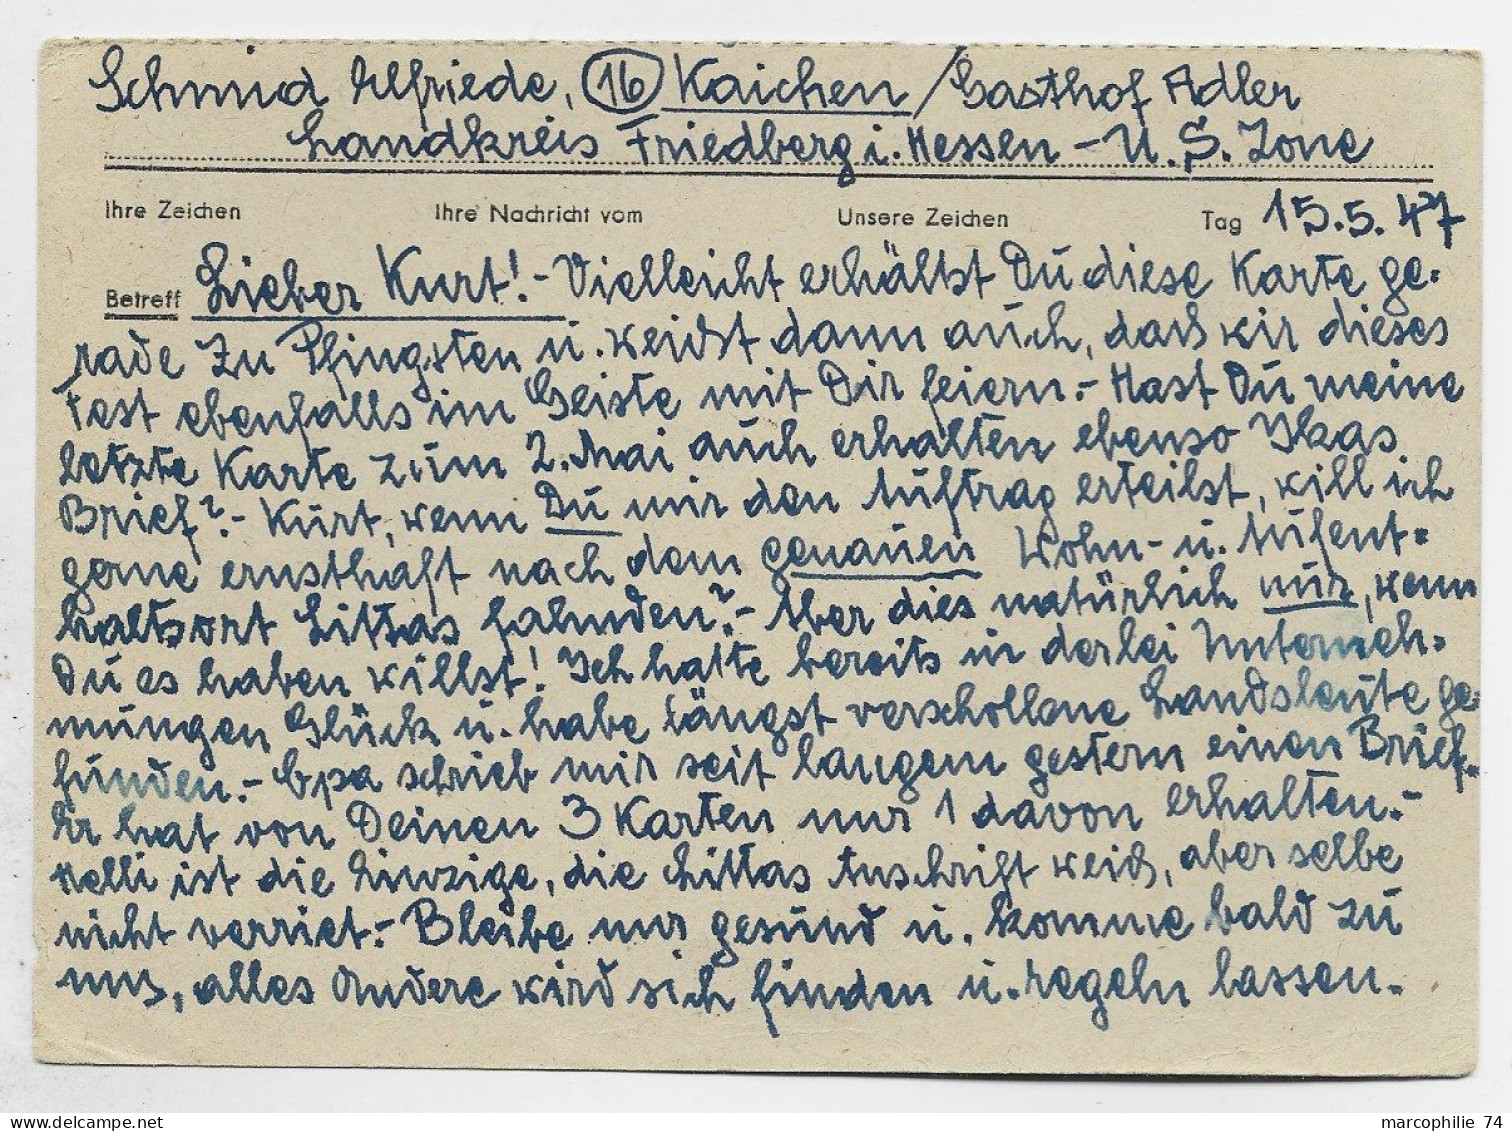 Schmid Elfriede, (16) Kaichen / Gasthof Adler
Landkreis Friedberg i. Hessen - U. S. Zone
Ihre Zeichen Ihre Nachricht vom Unsere Zeichen Tag 15.5.47
Betreff Lieber Kurt! - Vielleicht erhältst Du diese Karte ge-
rade zu Pfingsten u. weißt dann auch, daß wir dieses
Fest ebenfalls im Geiste mit Dir feiern. - Hast Du meine
letzte Karte zum 2. Mai auch erhalten ebenso Ilkas
Brief? - Kurt, wenn Du mir den Auftrag erteilst, will ich
gerne ernsthaft nach dem genauen Wohn- u. Aufent-
haltsort Littas fahnden? - Aber dies natürlich nur, wenn
Du es haben willst! Ich hatte bereits in derlei Unterneh-
mungen Glück u. habe längst verschollene Landsleute ge-
funden. - Opa schrieb mir seit langem gestern einen Brief.
Er hat von Deinen 3 Karten nur 1 davon erhalten. -
Nelli ist die Einzige, die Littas Anschrift weiß, aber selbe
nicht verriet. - Bleibe nur gesund u. komme bald zu
uns, alles Andere wird sich finden u. regeln lassen. -
marcophilie 74